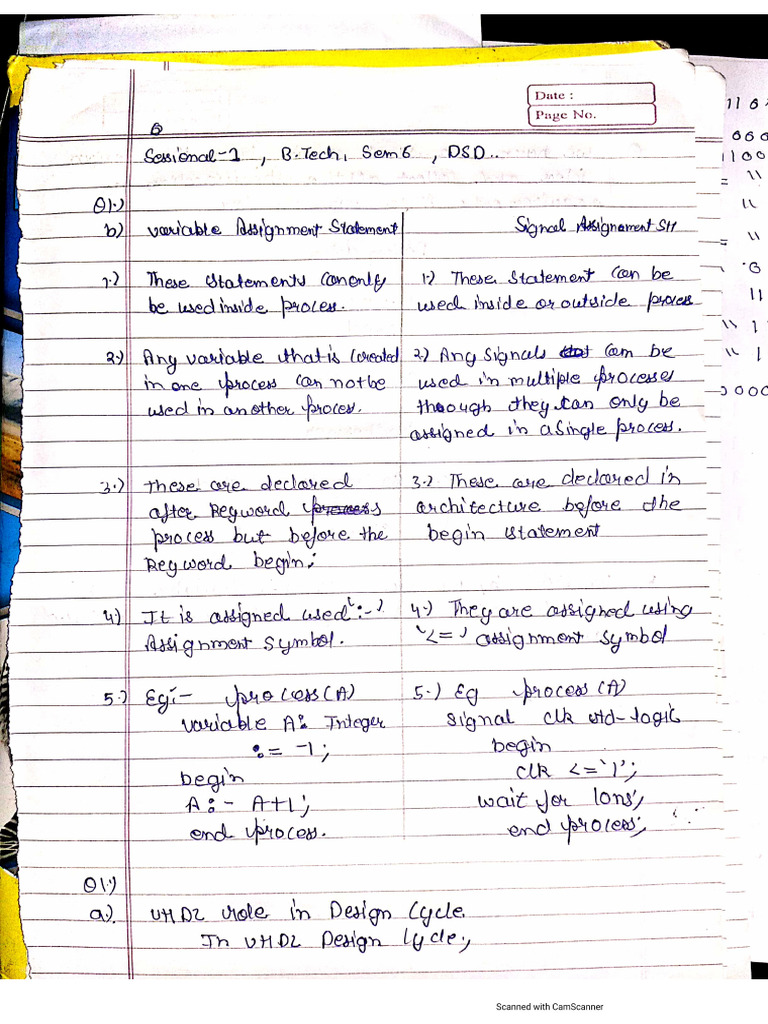 Date :
Page No.
Sessional-1 , B.Tech, Sem 6 , DSD..
Q1.)
b) variable Assignment Statement
Signal Assignament Stt
1.) These statements can only
be used inside process.
1.) These statement can be
used inside or outside process
2.) Any variable that is created
in one process can not be
used in another process.
2.) Any signals can be
used in multiple processes
though they can only be
assigned in a single process.
3.) These are declared
after keyword
process but before the
keyword begin;
3.) These are declared in
architecture before the
begin statement
4) It is assigned used ':-'
Assignment symbol.
4.) They are assigned using
'<=' assignment symbol
5.) Eg:- process(A)
variable A: Integer
:= -1;
begin
A:- A+1;
end process.
5.) Eg process(A)
signal clk std-logic
begin
clk <='1';
wait for 10ns;
end process;
Q1.)
a.) VHDL role in Design Cycle.
In VHDL Design Cycle.,
110
000
1100
= 11
11
= 11
0
11
11 1
11 1
0000
Scanned with CamScanner